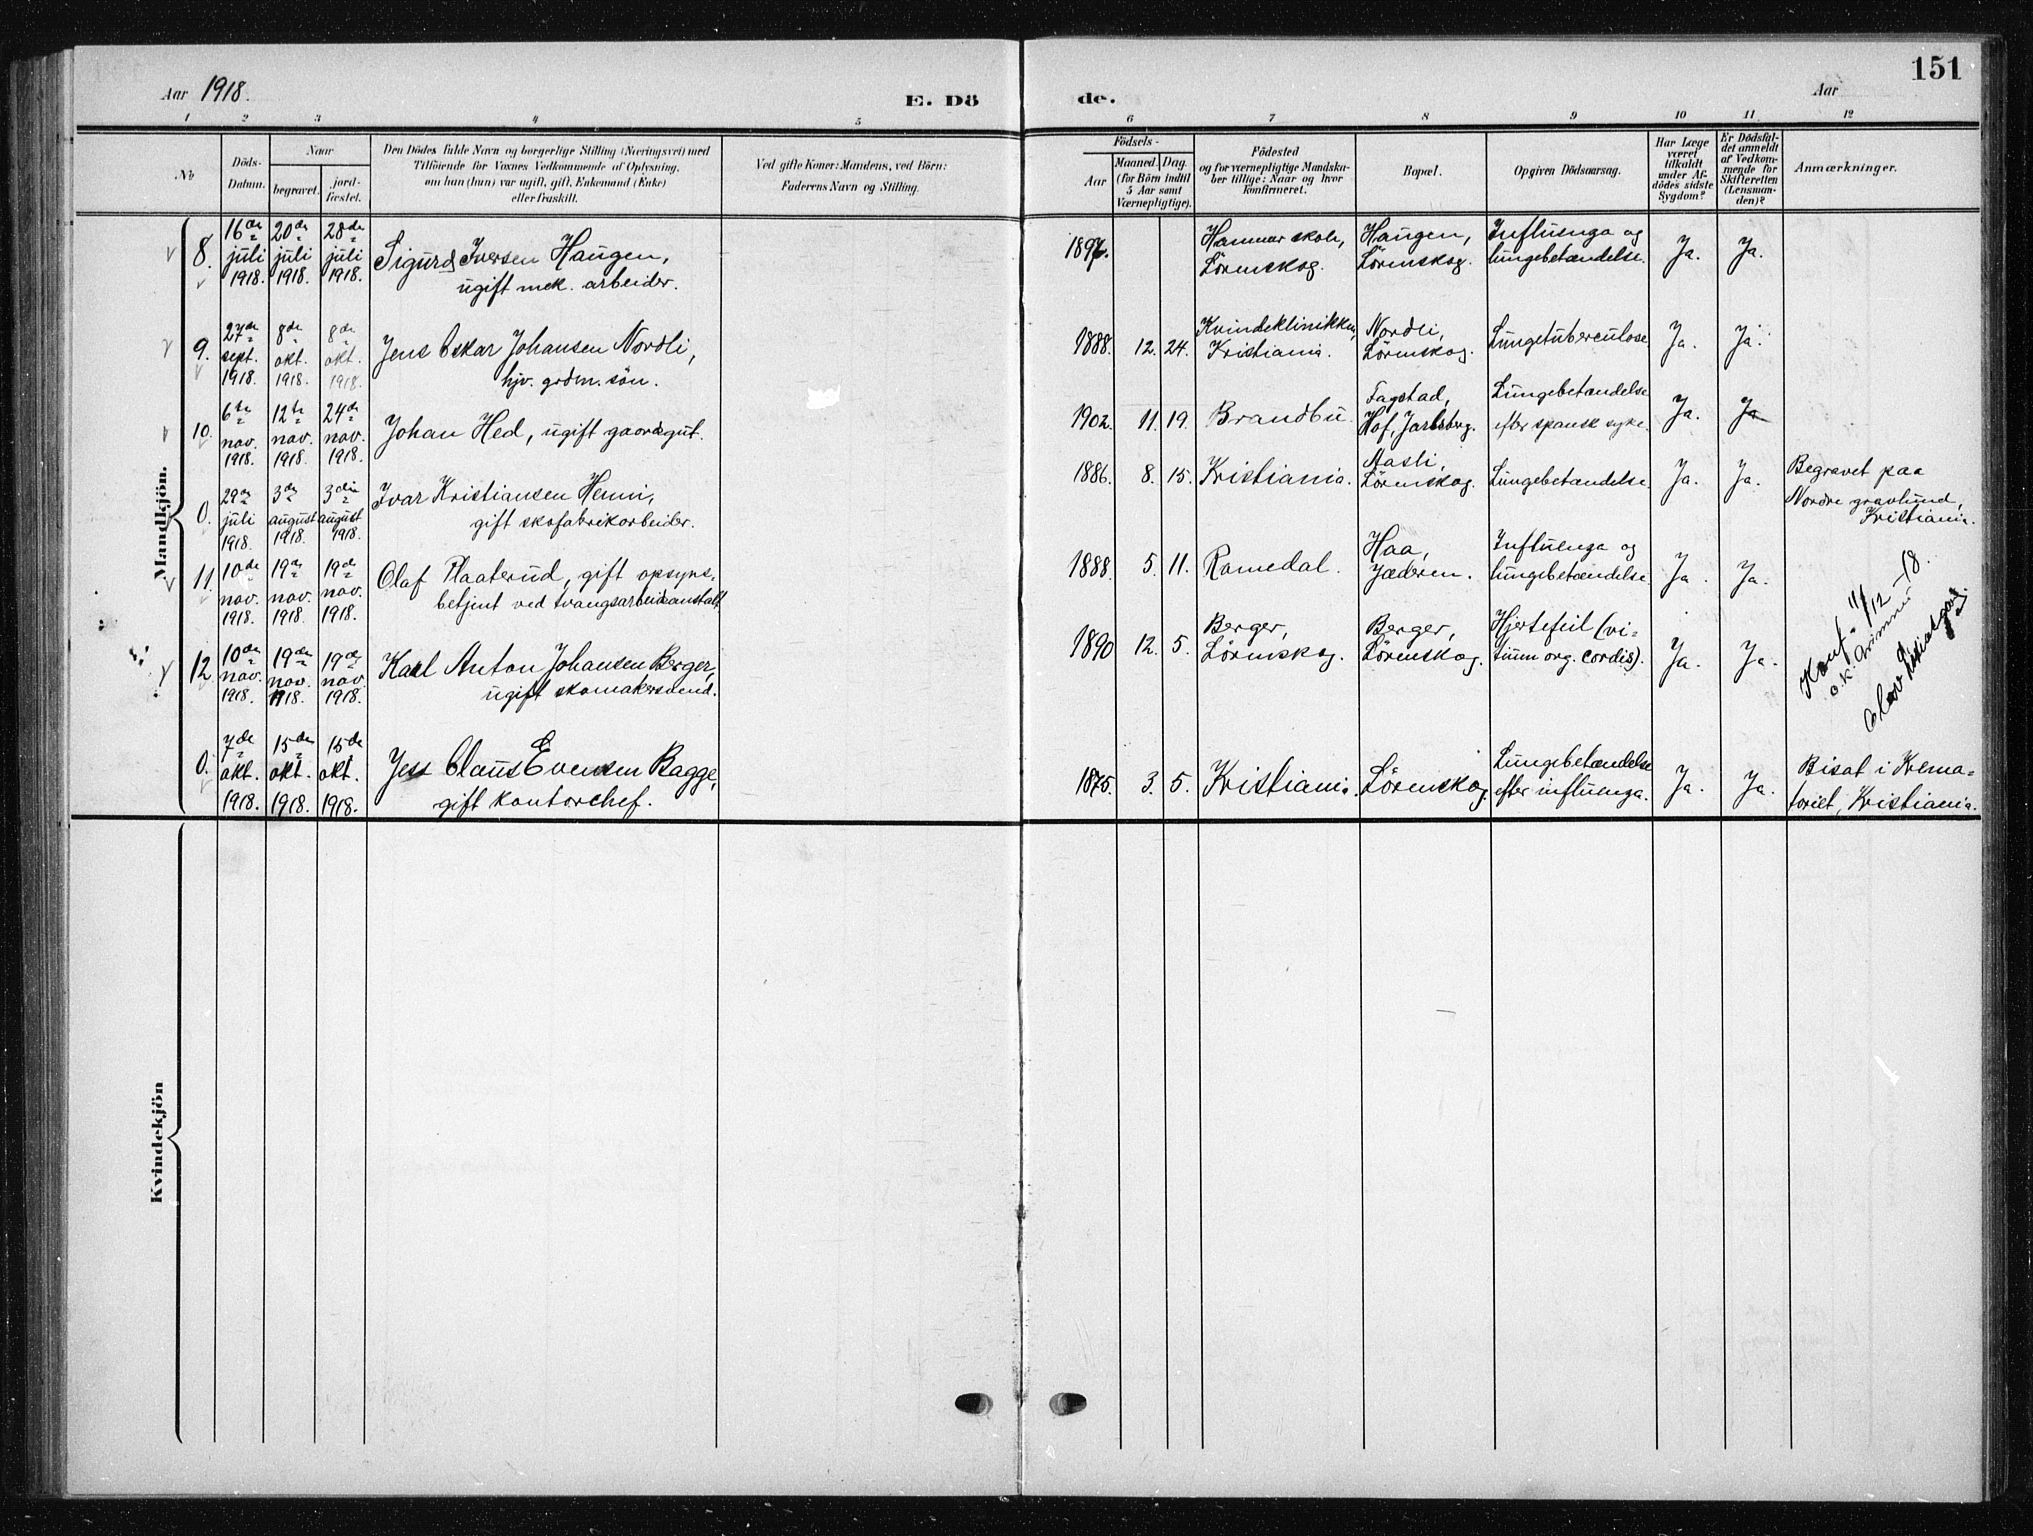 Aar 1918.
E. Dö
de.
Aar
151
1 2 3 4 5 6 7 8 9 10 11 12
No
Döds-
Datum.
Naar
begravet.
jord-
fæstet.
Den Dödes fulde Navn og borgerlige Stilling (Næringsvei) med
Tilföiende for Voxnes Vedkommende af Oplysning,
om han (hun) var ugift, gift, Enkemand (Enke)
eller fraskilt.
Ved gifte Koner: Mandens, ved Börn:
Faderens Navn og Stilling.
Födsels-
Aar
Maaned. Dag.
(for Börn indtil
5 Aar samt
Værnepligtige).
Födested
og for værnepligtige Mandska-
ber tillige: Naar og hvor
konfirmeret.
Bopæl.
Opgiven Dödsaarsag.
Har Læge
været
tilkaldt
under Af-
dödes sidste
Sygdom?
Er Dödsfal-
det anmeldt
af Vedkom-
mende for
Skifteretten
(Lensman-
den)?
Anmærkninger.
Mandkjön.
8.
16de juli 1918.
20de juli 1918.
28de juli 1918.
Sigurd Iversen Haugen,
ugift mek. arbeider.
1897.
Hammer skole,
Lörenskog.
Haugen,
Lörenskog.
Influenza og
lungebetændelse.
Ja.
Ja.
9.
27de sept. 1918.
8de okt. 1918.
8de okt. 1918.
Jens Oskar Johansen Nordli,
hjv. grdm. sön.
1888. 12. 24.
Kvindeklinikken,
Kristiania.
Nordli,
Lörenskog.
Lungetuberculose
Ja.
Ja.
10.
6te nov. 1918.
12te nov. 1918.
24de nov. 1918.
Johan Hed, ugift gaardsgut.
1902. 11. 19.
Brandbu
Fagstad,
Hof, Jarlsberg.
Lungebetændelse
efter spansk syke.
Ja.
Ja
0.
29de juli 1918.
3de august 1918.
3die august 1918.
Ivar Kristiansen Henni,
gift skofabrikarbeider.
1886. 8. 15.
Kristiania.
Aasli,
Lörenskog.
Lungebetændelse.
Ja.
Ja.
Begravet paa
Nordre gravlund,
Kristiania.
11.
10de nov. 1918.
19de nov. 1918.
19de nov. 1918.
Olaf Plaaterud, gift opsyns-
betjent ved tvangsarbeidsanstalt
1888. 5. 11.
Romedal.
Haa,
Jæderen.
Influenza og
lungebetændelse
Ja.
Ja.
12.
10de nov. 1918.
19de nov. 1918.
19de nov 1918.
Karl Anton Johansen Berger,
ugift skomakersvend.
1890 12. 5.
Berger,
Lörenskog.
Berger,
Lörenskog.
Hjertefeil (vi-
tium org. cordis).
Ja.
Ja.
Konf. 11/12-18.
0.
7de okt. 1918.
15de okt. 1918.
15de okt. 1918.
Jess Claus Evensen Bagge,
gift kontorchef.
1875. 3. 5.
Kristiania.
Lörenskog.
Lungebetændelse
efter influenza.
Ja.
Ja.
Bisat i Krema-
toriet, Kristiania.
Kvindekjön